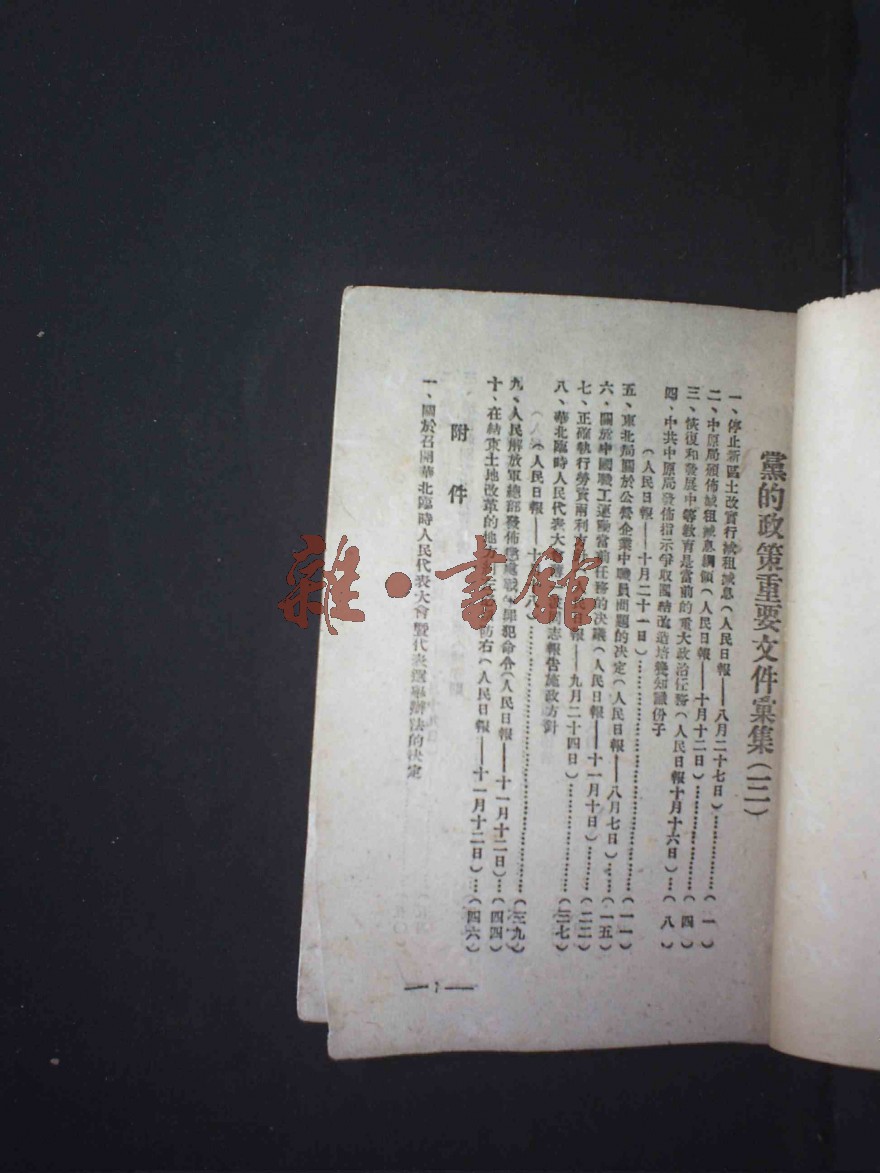 黨的政策重要文件彙集(二)
一、停止新區土改實行減租減息(人民日報——八月二十七日)…………(一)
二、中原局頒佈減租減息綱領(人民日報——十月十二日)…………(四)
三、恢復和發展中等教育是當前的重大政治任務(人民日報十月十六日)…(八)
四、中共中原局發佈指示爭取團結改造培養知識份子
(人民日報——十月二十一日)…………(一一)
五、東北局關於公營企業中職員問題的決定(人民日報——八月七日)……(一五)
六、關於中國職工運動當前任務的決議(人民日報——十一月十日)……(二二)
七、正確執行勞資兩利方 日報——九月二十四日)…………(三七)
八、華北臨時人民代表大會 同志報告施政方針
(人民日報——十 八)…………(三九)
九、人民解放軍總部發佈懲處戰爭罪犯命令(人民日報——十一月十二日)…(四四)
十、在結束土地改革的地 防右(人民日報——十一月十二日)…(四六)
附件
一、關於召開華北臨時人民代表大會暨代表選舉辦法的決定
— 1 —
雜·書館